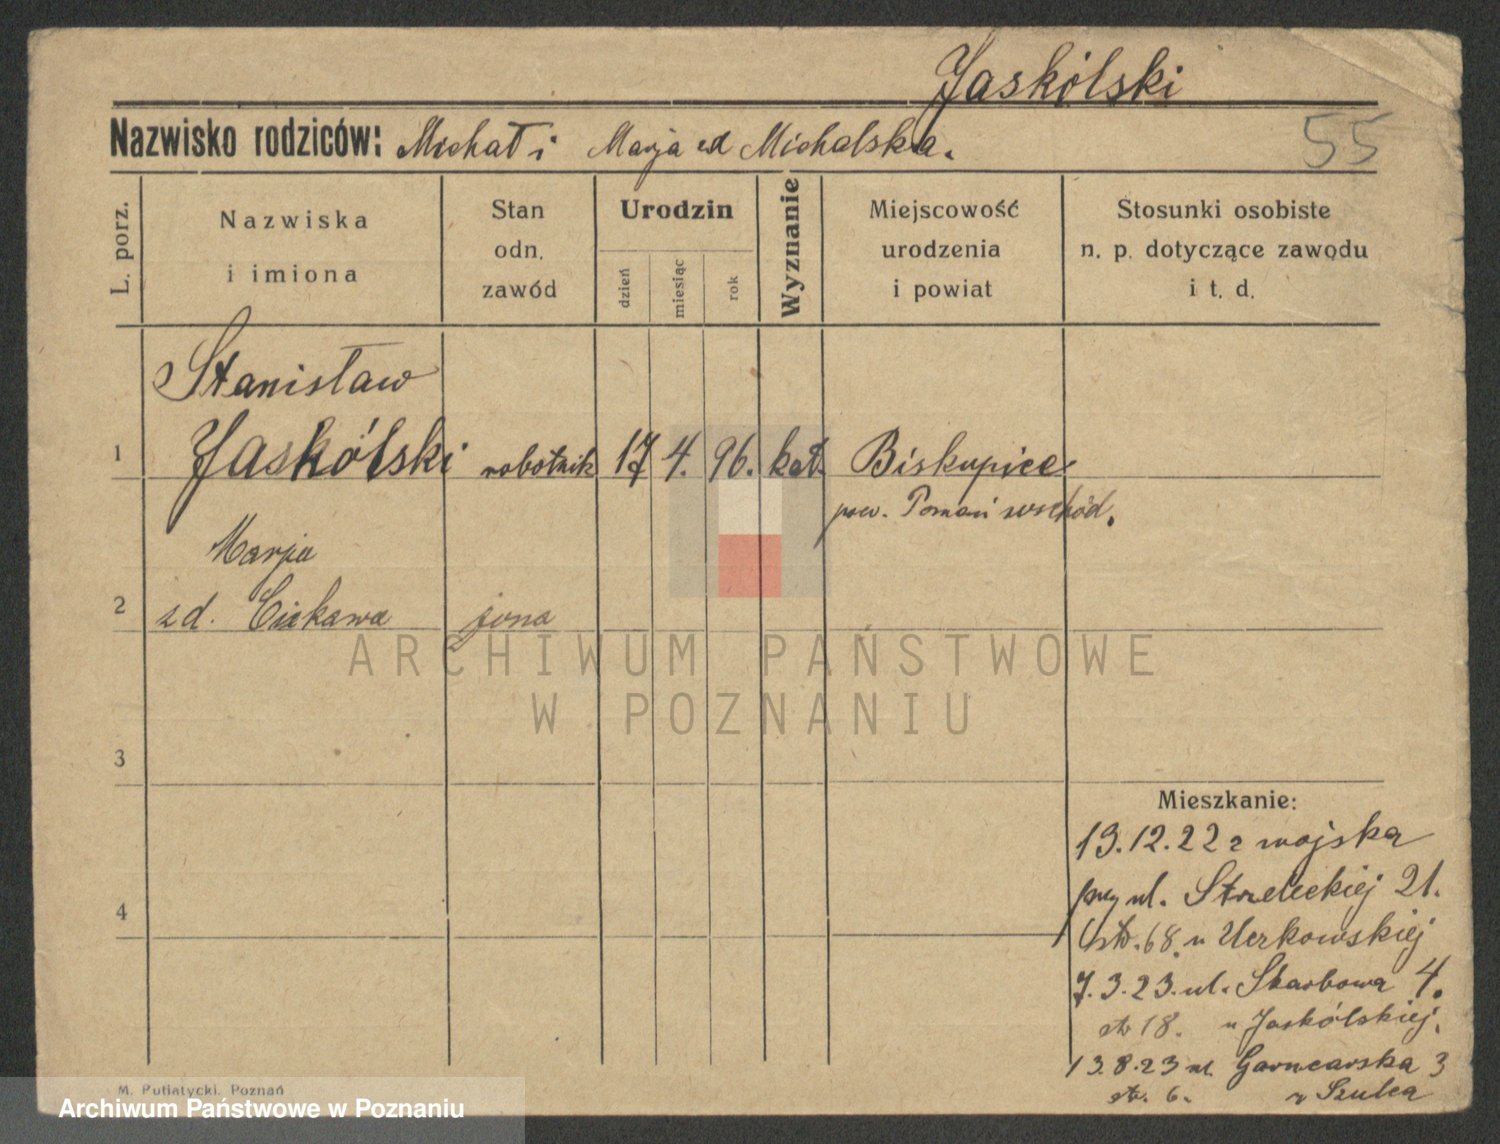 Jaskólski
Nazwisko rodziców: Michał i Marja zd Michalska.
55
L. porz.
Nazwiska
i imiona
Stan
odn.
zawód
Urodzin
dzień
miesiąc
rok
Wyznanie
Miejscowość
urodzenia
i powiat
Stosunki osobiste
n. p. dotyczące zawodu
i t. d.
Stanisław
1 Jaskólski robotnik 17 4. 96. kat. Biskupice
pow. Poznań wschód.
Marja
2 zd. Ciekawa żona
ARCHIWUM PAŃSTWOWE
W POZNANIU
3
Mieszkanie:
19.12.22 z wojska
przy ul. Strzeleckiej 21.
4
str. 68. u Urkowskiej
7.3.23. ul. Skarbowa 4.
str 18. u Jaskólskiej.
13.8.23 ul. Garncarska 3
str. 6. u Szulca
M. Putiatycki, Poznań
Archiwum Państwowe w Poznaniu